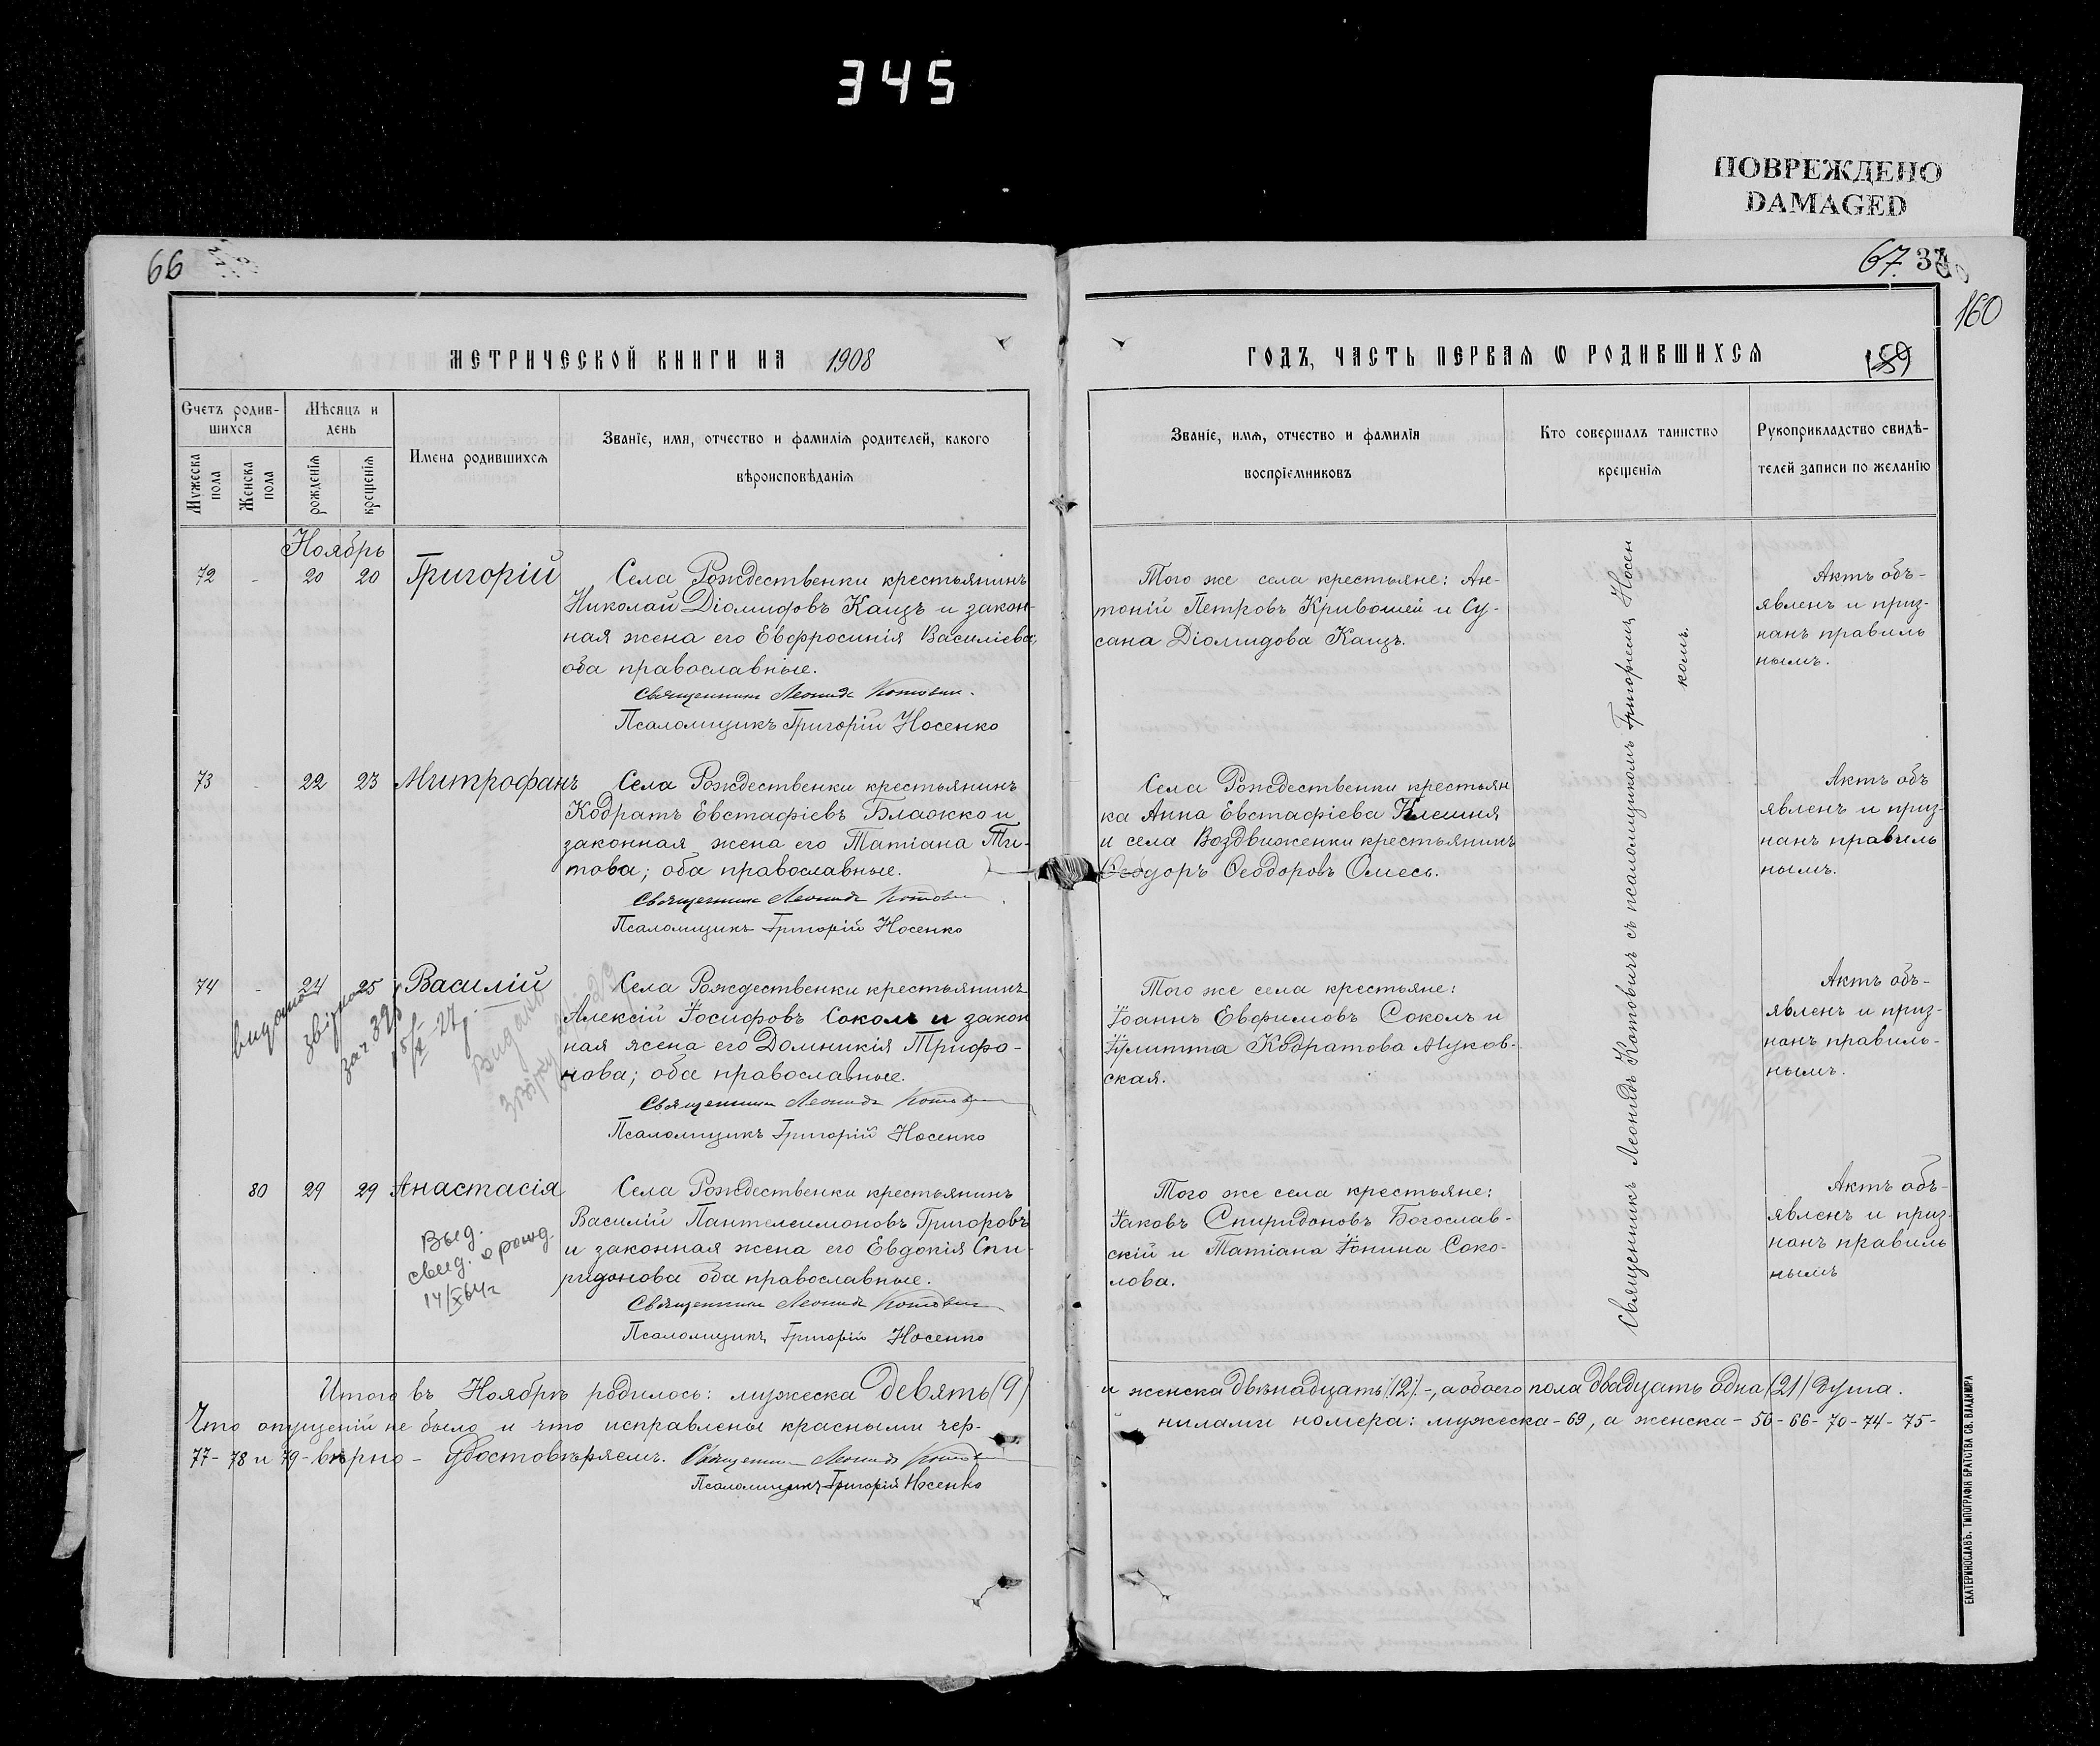 345
ПОВРЕЖДЕНО
DAMAGED
66
67.
160
МЕТРИЧЕСКОЙ КНИГИ НА 1908
ГОДЪ, ЧАСТЬ ПЕРВАЯ Ѡ РОДИВШИХСЯ
159
Счетъ родив-
шихся
Мужеска пола
Женска пола
Мѣсяцъ и
день
рожденія
крещенія
Имена родившихся
Званіе, имя, отчество и фамилія родителей, какого
вѣроисповѣданія
Званіе, имя, отчество и фамилія
воспріемниковъ
Кто совершалъ таинство
крещенія
Рукоприкладство свидѣ-
телей записи по желанію
Ноябрь
72 - 20 20 Григорій
Села Рождественки крестьянинъ
Николай Діомидовъ Кащъ и закон-
ная жена его Евфросинія Василіева;
оба православные.
Священникъ Леонидъ Котович.
Псаломщикъ Григорій Носенко
Того же села крестьяне: Ан-
тоній Петровъ Кривошей и Су-
сана Діомидова Кащъ.
Актъ объ-
явленъ и приз-
нанъ правиль
нымъ.
73 - 22 23 Митрофанъ
Села Рождественки крестьянинъ
Кодратъ Евстафіевъ Блажко и
законная жена его Татіана Ти-
това; оба православные.
Священникъ Леонидъ Котович
Псаломщикъ Григорій Носенко
Села Рождественки крестьян
ка Анна Евстафіева Клешня
и села Воздвиженки крестьянинъ
Ѳеодоръ Ѳеодоровъ Омесь.
Актъ объ
явленъ и приз-
нанъ правиль
нымъ.
74 - 24 25 Василій
видано
звірку
Видано
Села Рождественки крестьянинъ
Алексій Іосифовъ Соколъ и закон
ная жена его Домникія Трифо-
нова; оба православные.
Священникъ Леонидъ Котович
Псаломщикъ Григорій Носенко
Того же села крестьяне:
Іоаннъ Евфимовъ Соколъ и
Іулитта Кодратова Муков-
ская.
Актъ объ-
явленъ и приз-
нанъ правиль-
нымъ.
80 29 29 Анастасія
Выд.
свид. о рожд.
14/X 64г
Села Рождественки крестьянинъ
Василій Пантелеимоновъ Григоровъ
и законная жена его Евдокія Спи-
ридонова оба православные.
Священникъ Леонидъ Котович
Псаломщикъ Григорій Носенко
Того же села крестьяне:
Іаковъ Спиридоновъ Богослав-
скій и Татіана Іонина Соко-
лова.
Актъ объ-
явленъ и приз-
нанъ правиль
нымъ
Священникъ Леонидъ Котовичъ съ псаломщикомъ Григоріемъ Носен
комъ.
Итого въ Ноябрѣ родилось: мужеска девять (9)
и женска двѣнадцать (12) -, а обоего пола двадцать одна (21) душа.
Что опущеній не было и что исправлены красными чер-
нилами номера: мужеска - 69, а женска - 56 - 66 - 70 - 74 - 75 -
77 - 78 и 79 - вѣрно - удостовѣряемъ. Священник Леонидъ Котович
Псаломщикъ Григорій Носенко
ЕКАТЕРИНОСЛАВЪ. ТИПОГРАФІЯ БРАТСТВА СВ. ВЛАДИМІРА